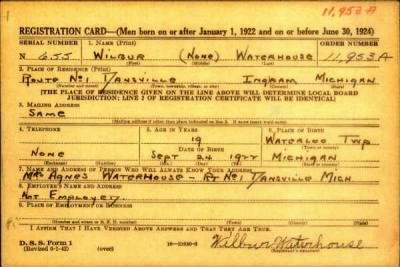 11,953 A
REGISTRATION CARD—(Men born on or after January 1, 1922 and on or before June 30, 1924)
SERIAL NUMBER 1. NAME (Print) ORDER NUMBER
N 655 WILBUR (NONE) WATERHOUSE 11,953A
(First) (Middle) (Last)
2. PLACE OF RESIDENCE (Print)
ROUTE NO 1 DANSVILLE INGHAM MICHIGAN
(Number and street) (Town, township, village, or city) (County) (State)
[THE PLACE OF RESIDENCE GIVEN ON THE LINE ABOVE WILL DETERMINE LOCAL BOARD
JURISDICTION; LINE 2 OF REGISTRATION CERTIFICATE WILL BE IDENTICAL]
3. MAILING ADDRESS
SAME
[Mailing address if other than place indicated on line 2. If same insert word same]
4. TELEPHONE 5. AGE IN YEARS 6. PLACE OF BIRTH
19 WATERLOO TWP
(Town or county)
NONE SEPT 24 1922 MICHIGAN
(Exchange) (Number) (Mo.) (Day) (Yr.) (State or country)
7. NAME AND ADDRESS OF PERSON WHO WILL ALWAYS KNOW YOUR ADDRESS
MRS AGNES WATERHOUSE - RT NO 1 DANSVILLE MICH
8. EMPLOYER'S NAME AND ADDRESS
NOT EMPLOYED
9. PLACE OF EMPLOYMENT OR BUSINESS
(Number and street or R. F. D. number) (Town) (County) (State)
I AFFIRM THAT I HAVE VERIFIED ABOVE ANSWERS AND THAT THEY ARE TRUE.
D. S. S. Form 1
(Revised 6-1-42) (over) Wilbur Waterhouse
(Registrant's signature)